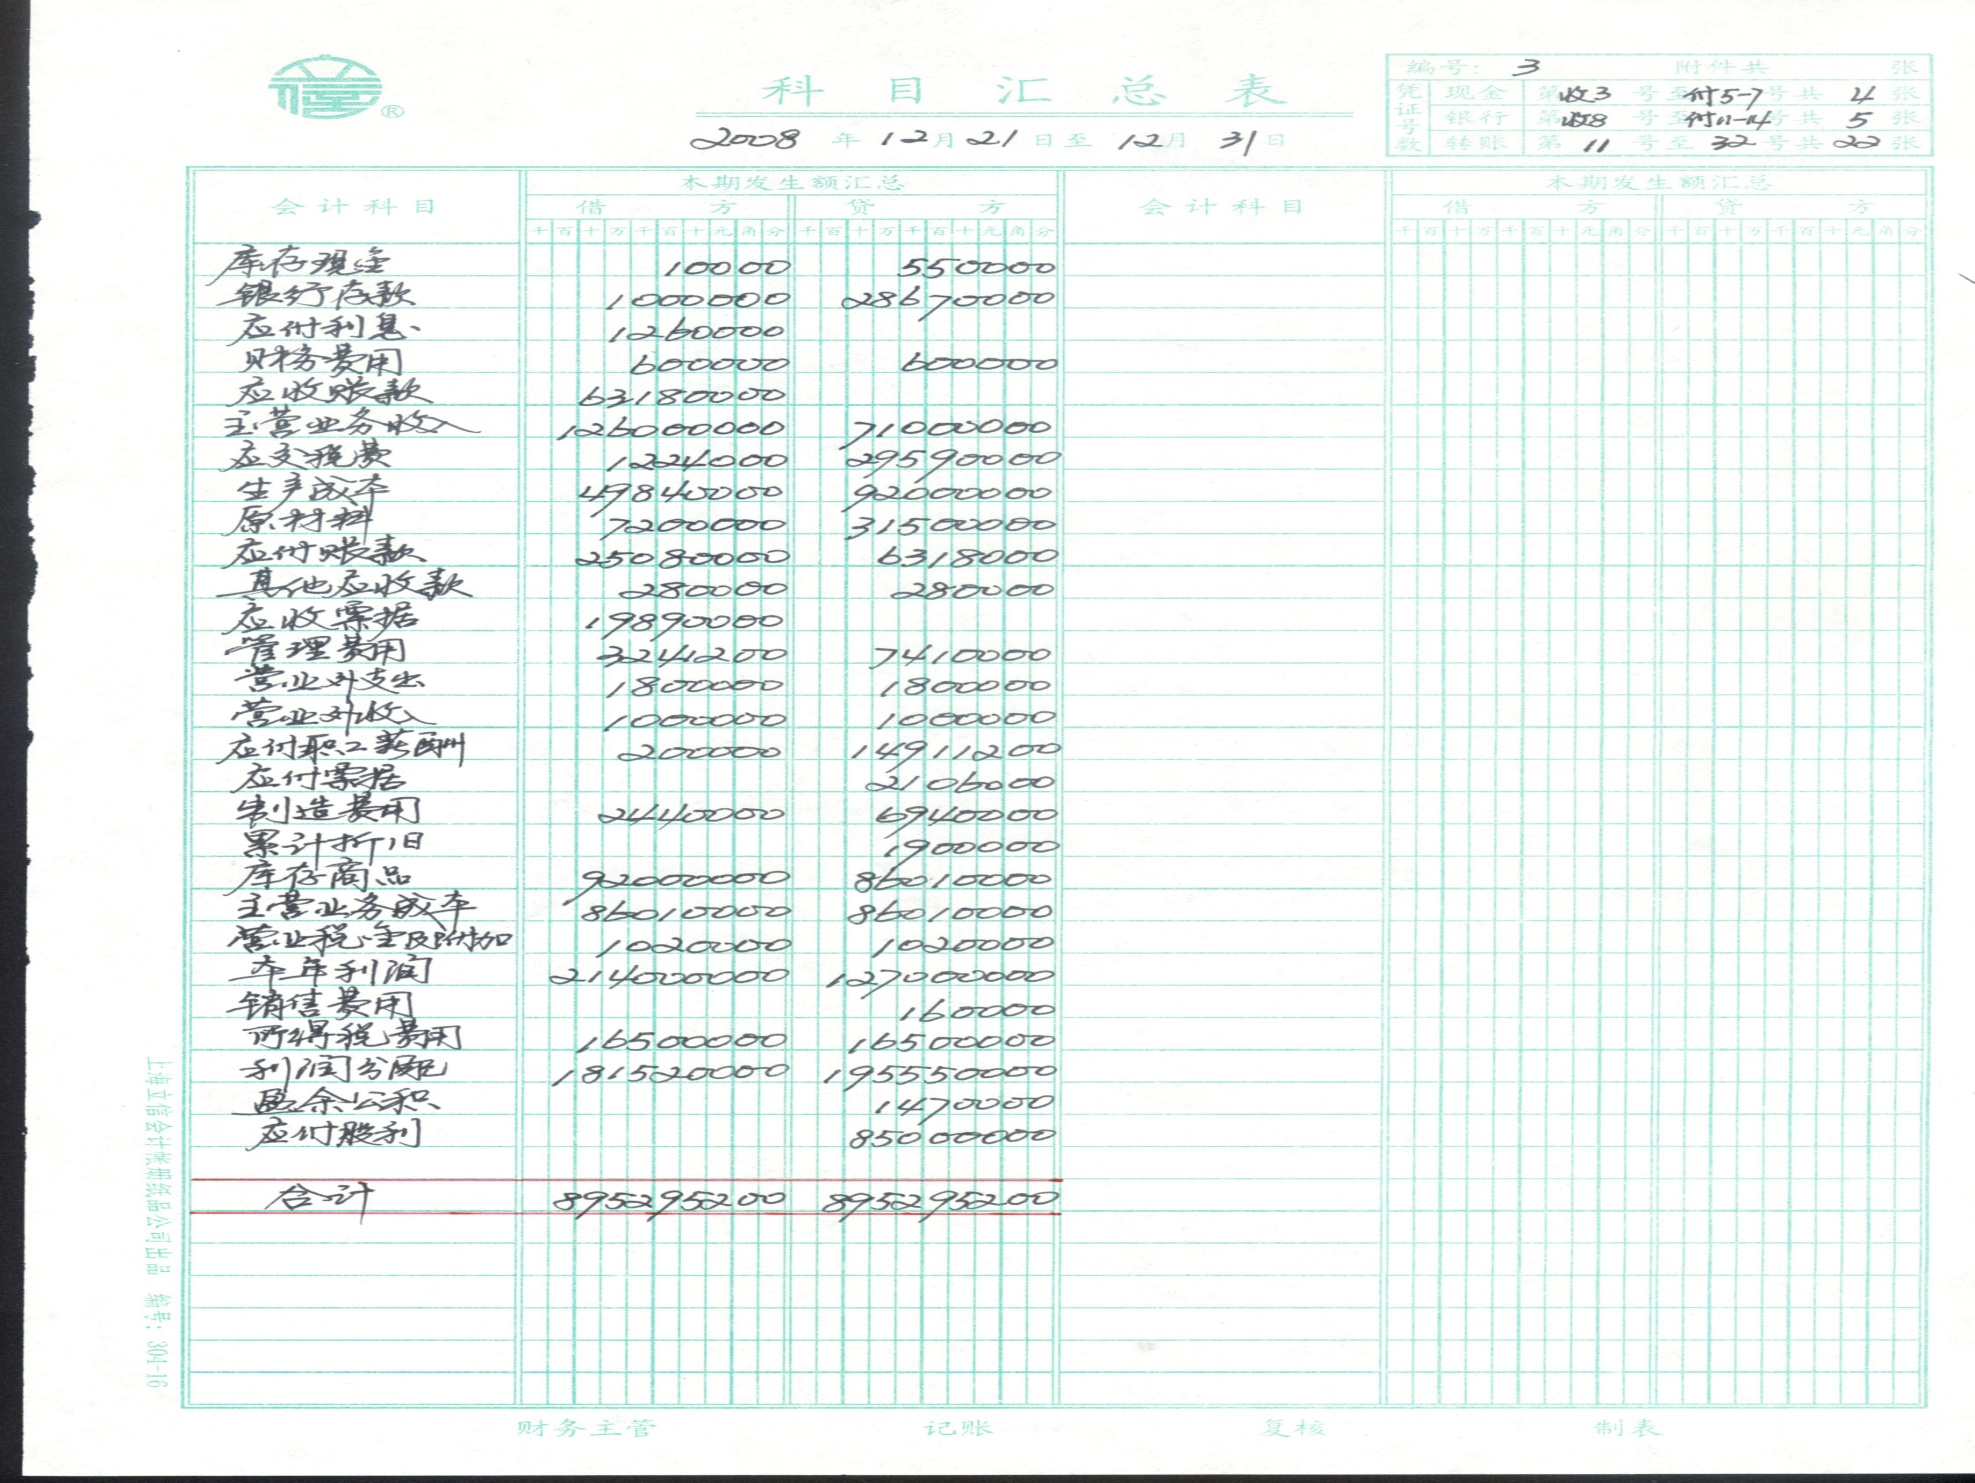 科目汇总表
编号: 3 附件共 张
凭证号数 现金 第收3号至付5-7号共4张
银行 第收8号至付11-14号共5张
转账 第11号至32号共22张
2008年12月21日至12月31日
会计科目 本期发生额汇总 会计科目 本期发生额汇总
借方 贷方 借方 贷方
千百十万千百十元角分 千百十万千百十元角分 千百十万千百十元角分 千百十万千百十元角分
库存现金 10000 550000
银行存款 1000000 28670000
应付利息 1260000
财务费用 600000 600000
应收账款 63180000
主营业务收入 126000000 71000000
应交税费 1224000 29590000
生产成本 49840000 92000000
原材料 7200000 31500000
应付账款 25080000 6318000
其他应收款 280000 280000
应收票据 19890000
管理费用 3241200 7410000
营业外支出 1800000 1800000
营业外收入 1000000 1000000
应付职工薪酬 200000 14911200
应付票据 2106000
制造费用 2440000 6940000
累计折旧 1900000
库存商品 92000000 86010000
主营业务成本 86010000 86010000
营业税金及附加 1020000 1020000
本年利润 214000000 127000000
销售费用 160000
所得税费用 16500000 16500000
利润分配 181520000 195550000
盈余公积 1470000
应付股利 85000000
合计 895295200 895295200
财务主管 记账 复核 制表
上海立信会计帐册纸品公司出品 编号: 304-16